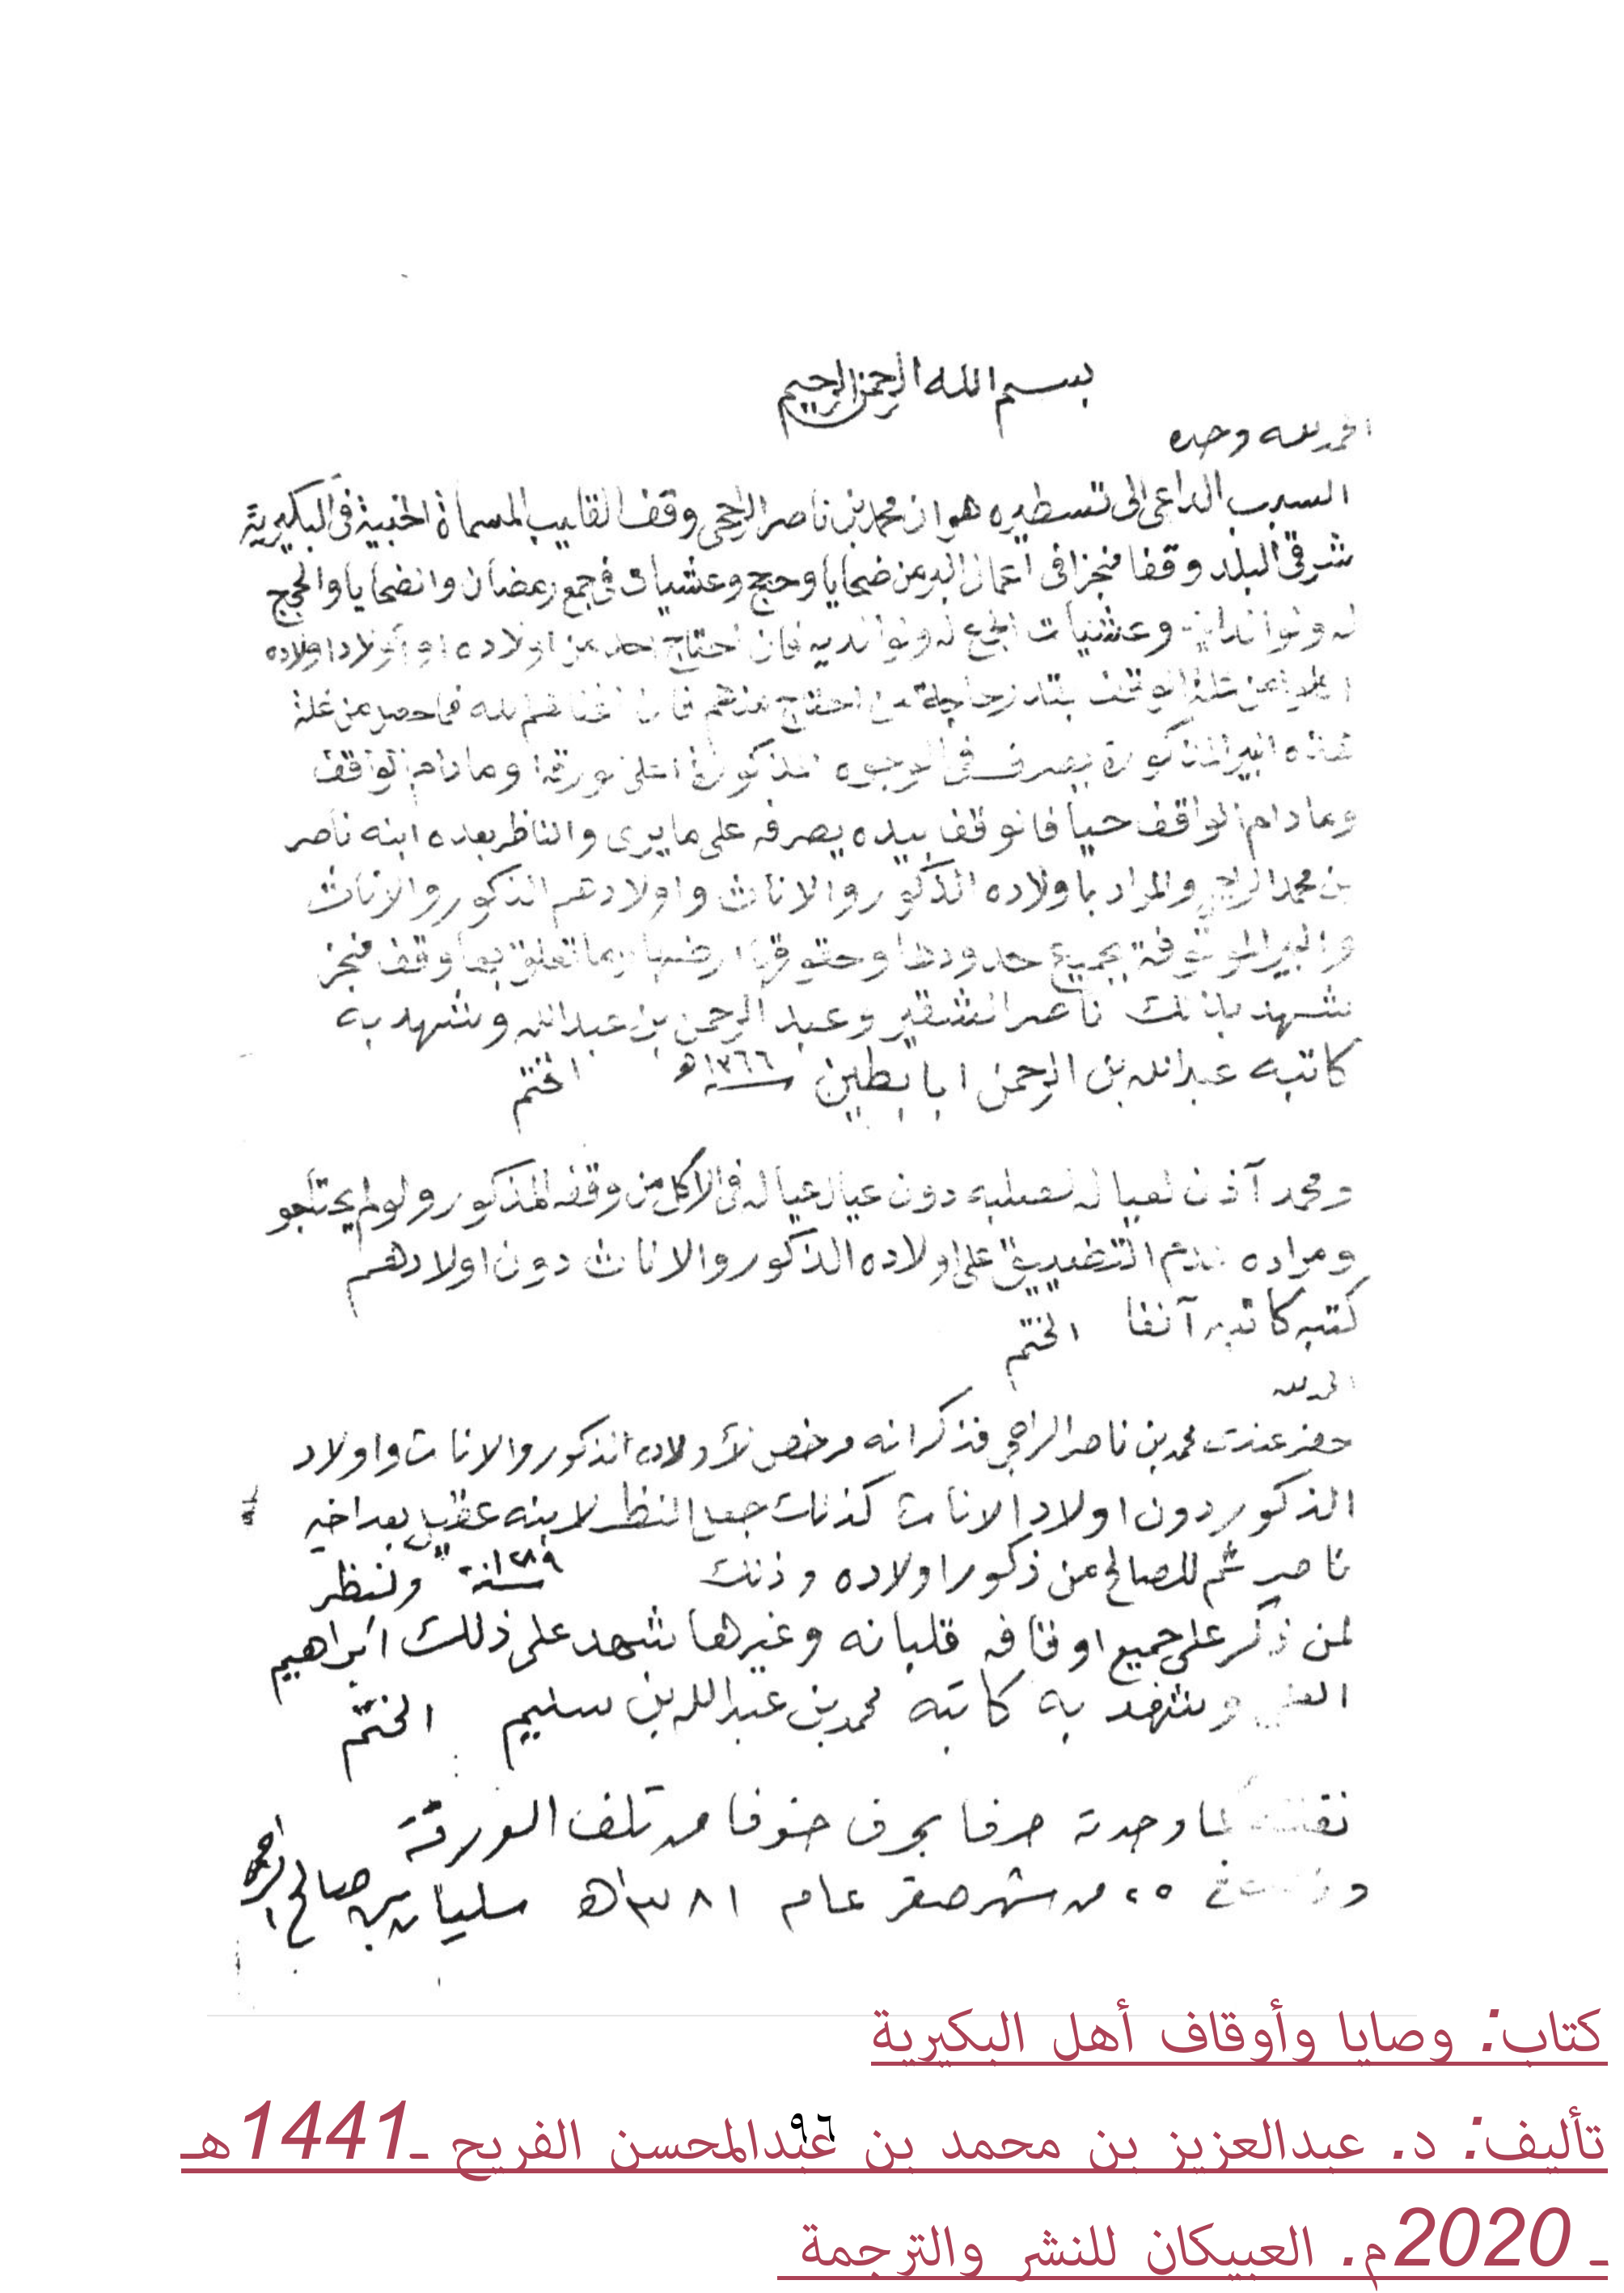 بسم الله الرحمن الرحيم
الحمد لله وحده
السبب الداعي الى تسطيره هو ان محمد بن ناصر الراجحي وقف القليب المسماة الخبيبة في البكيرية
شرقي البلد وقفا منجزا في اعمال البر من ضحايا وحجج وعشيات في جمع رمضان والضحايا والحجج
له ولوالديه وعشيات الجمع له ولوالديه فان احتاج احد من اولاده او أولاد اولاده
من غلة الوقف بقدر حاجة من احتاج منهم فان اغناهم الله فما حصل من غلة
هذه البير المذكورة يصرف في الوجوه المذكورة اعلى الورقة وما دام الواقف
وما دام الواقف حيا فالوقف بيده يصرفه على ما يرى والناظر بعده ابنه ناصر
بن محمد الراجحي والمراد باولاده الذكور والاناث واولادهم الذكور والاناث
والبير الموقوفة بجميع حدودها وحقوقها ارضها وما تعلق بها وقف منجز
شهد بذلك ناصر الشقير وعبد الرحمن بن عبد الله وشهد به
كاتبه عبد الله بن الرحمن ابا بطين سنة ١٢٦٦هـ الختم
ومحمد آذن لعياله لصلبه دون عيال عياله في الاكل من وقفه المذكور ولو لم يحتاجو
ومراده عدم التضييق على اولاده الذكور والاناث دون اولادهم
كتبه كاتبه آنفا الختم
الحمد لله
حضر عندي محمد بن ناصر الراجحي فذكر انه مرخص لأولاده الذكور والاناث واولاد
الذكور دون اولاد الاناث كذلك جعل النظر لابنه عقيل بعد اخيه
ناصر ثم للصالح من ذكور اولاده وذلك سنة ١٢٨٩ ولنظر
لمن ذكر على جميع اوقافه قلبانه وغيرها شهد على ذلك ابراهيم
وشهد به كاتبه محمد بن عبد الله بن سليم الختم
نقلته كما وجدته حرفا بحرف خوفا من تلف الورقة
وذلك في ٢٥ من شهر صفر عام ١٣٨١هـ سليمان بن صالح الراجحي
كتاب: وصايا وأوقاف أهل البكيرية
تأليف: د. عبدالعزيز بن محمد بن عبدالمحسن الفريح ـ1441هـ
ـ 2020م. العبيكان للنشر والترجمة
٩٦